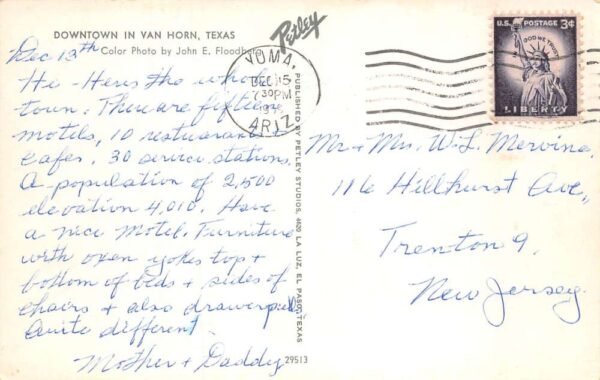 DOWNTOWN IN VAN HORN, TEXAS
Color Photo by John E. Floodberg
Petley
Dec 13th
Hi - Heres the whole
town: There are fifteen
motels, 10 restuarants
Cafes. 30 service stations.
A population of 2,500
elevation 4,010. Have
a nice Motel. Furniture
with oxen yokes top +
bottom of beds + sides of
chairs + also drawerpulls
Quite different
Mother + Daddy
29513
PUBLISHED BY PETLEY STUDIOS, 4620 LA LUZ, EL PASO, TEXAS
YUMA,
DEC 15
730PM
ARIZ
U.S. POSTAGE 3¢
IN GOD WE TRUST
LIBERTY
Mr + Mrs. W. L. Mervine
116 Hillhurst Ave,
Trenton 9,
New Jersey.